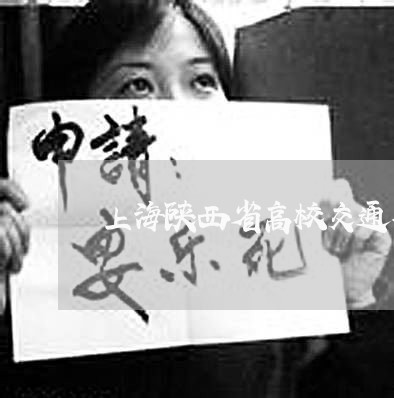 申請：
上海陕西省高校交通
要乐死